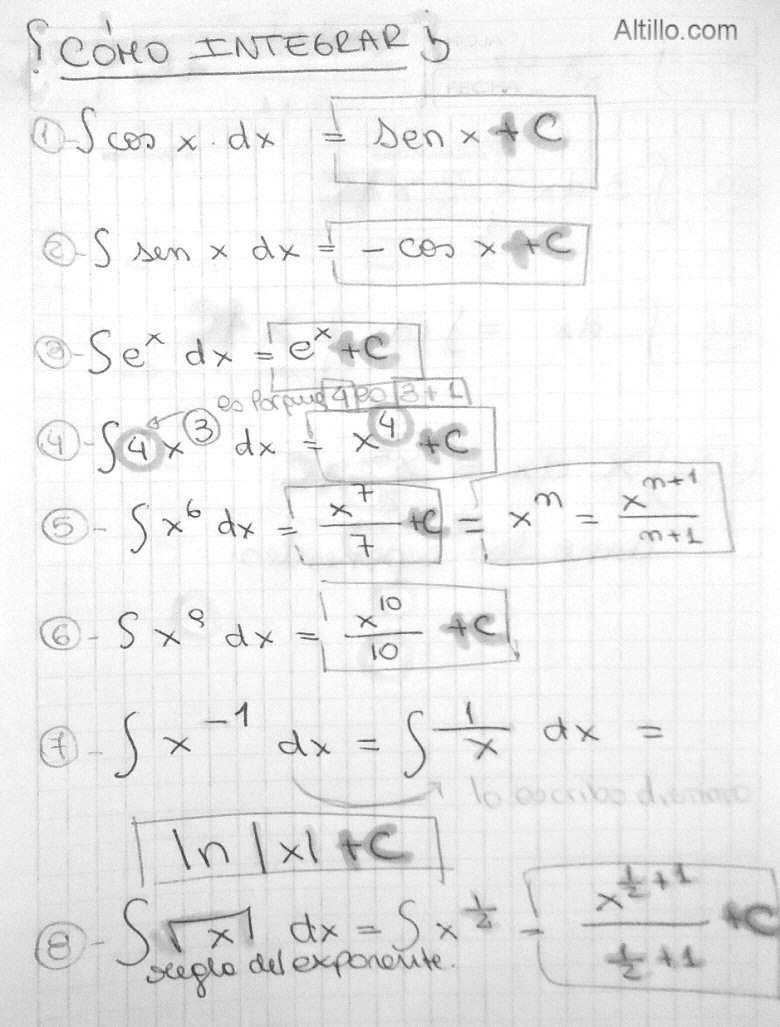 Altillo.com
¿CÓMO INTEGRAR?
① - ∫ cos x · dx = sen x + C
② - ∫ sen x dx = - cos x + C
③ - ∫ e^x dx = e^x + C
es porque 4 es 3+1
④ - ∫ 4 x^3 dx = x^4 + C
⑤ - ∫ x^6 dx = x^7/7 + C = x^n = x^(n+1)/(n+1)
⑥ - ∫ x^9 dx = x^10/10 + C
⑦ - ∫ x^-1 dx = ∫ 1/x dx =
lo escribo distinto
ln |x| + C
⑧ - ∫ √x dx = ∫ x^(1/2) = x^(1/2+1)/(1/2+1) + C
regla del exponente.